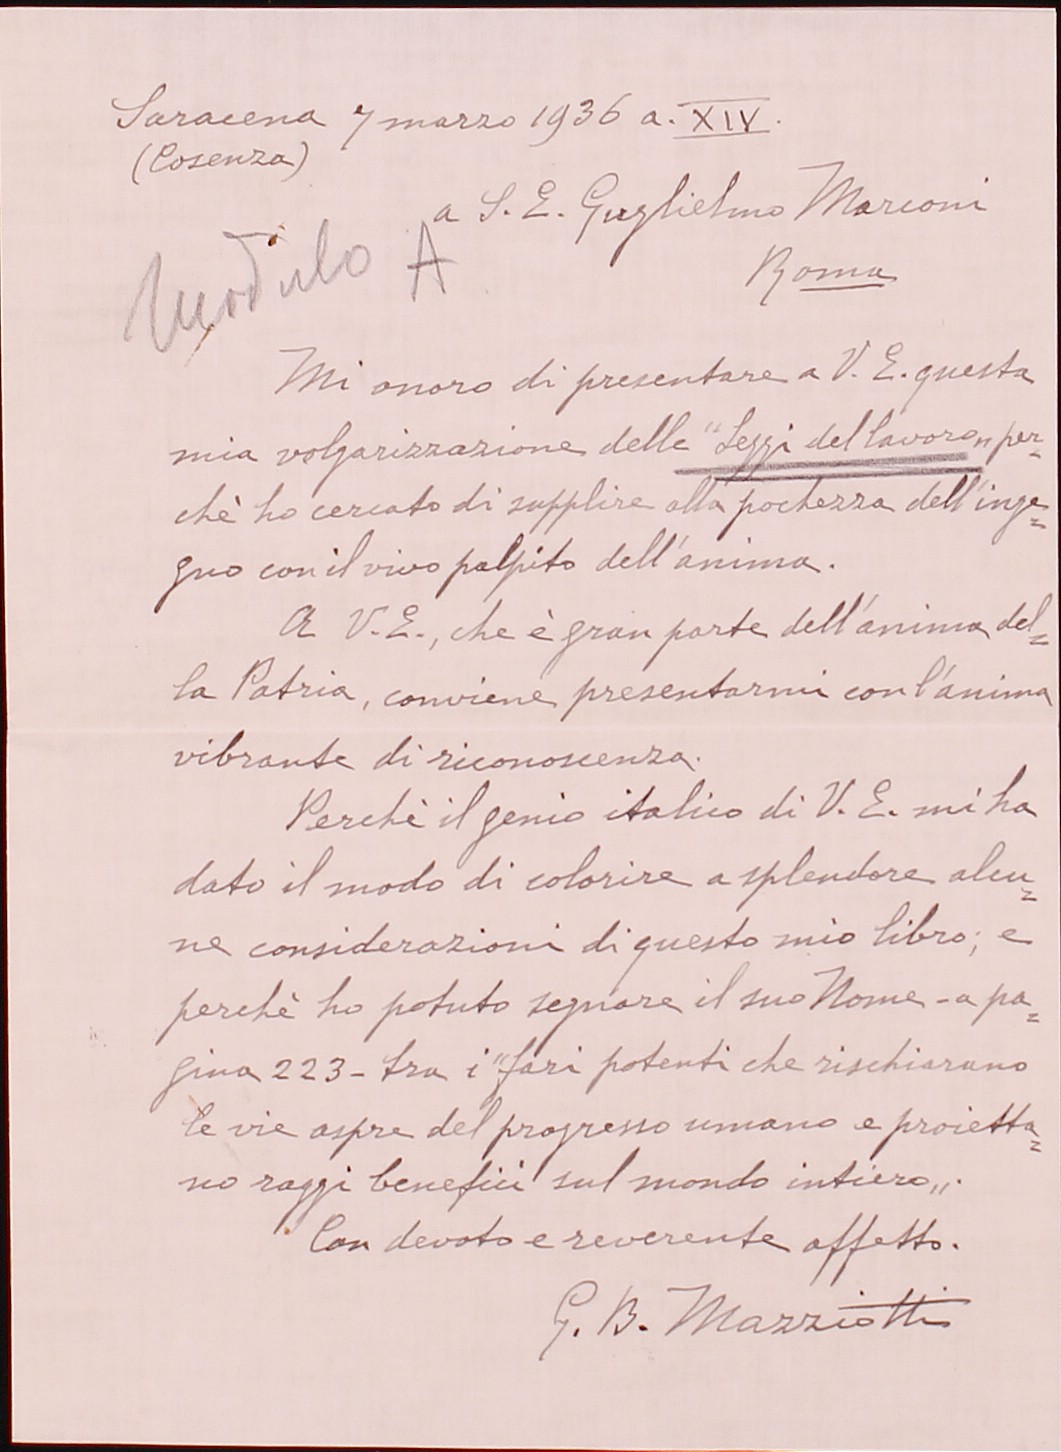 Saracena 7 marzo 1936 a. XIV.
(Cosenza)
a S. E. Guglielmo Marconi
Roma
Modulo A
Mi onoro di presentare a V. E. questa
mia volgarizzazione delle "Leggi del lavoro„ per=
chè ho cercato di supplire alla pochezza dell'inge=
gno con il vivo palpito dell'anima.
A V. E., che è gran parte dell'anima del=
la Patria, conviene presentarmi con l'anima
vibrante di riconoscenza.
Perchè il genio italico di V. E. mi ha
dato il modo di colorire a splendore alcu=
ne considerazioni di questo mio libro; e
perchè ho potuto segnare il suo Nome - a pa=
gina 223 - tra i "fari potenti che rischiarano
le vie aspre del progresso umano e proietta=
no raggi benefici sul mondo intiero„.
Con devoto e reverente affetto.
G. B. Mazziotti